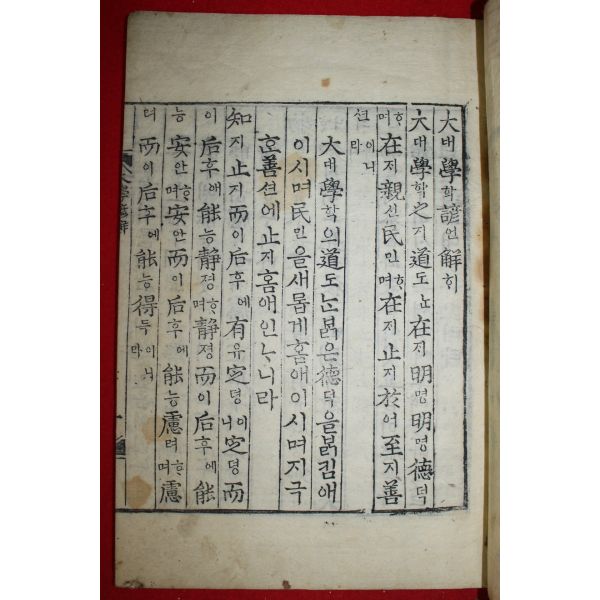 大대學학諺언解ᄒᆡ
大대學학之지道도ᄂᆞᆫ在ᄌᆡ明명明명德덕
ᄒᆞ며在ᄌᆡ親신民민ᄒᆞ며在ᄌᆡ止지於어至지善
션이니라
大대學학의道도ᄂᆞᆫᄇᆞᆰ은德덕을ᄇᆞᆰ킴애
이시며民민을새롭게홈애이시며지극
ᄒᆞᆫ善션에止지홈애인ᄂᆞ니라
知지止지而이后후에有유定뎡이니定뎡而
이后후에能능靜졍ᄒᆞ며靜졍而이后후에能
능安안ᄒᆞ며安안而이后후에能능慮려ᄒᆞ며慮
려而이后후에能능得득이니라
學諺解